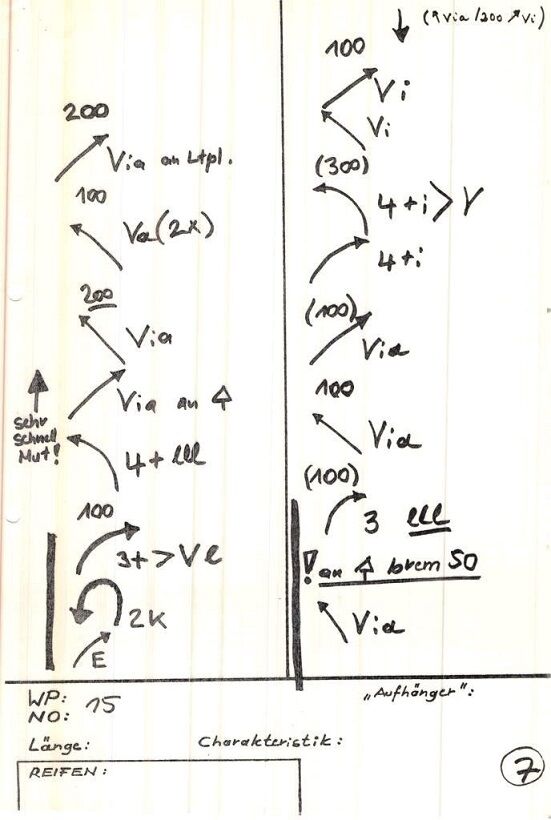 200
Via an Ltpl.
100
Va (2x)
200
Via
Via an
sehr
schnell
Mut!
4+ lll
100
3+ > V l
2K
E
(Via / 200 Vi)
100
Vi
Vi
(300)
4+i > V
4+i
(100)
Via
100
Via
(100)
3 lll
! an brem 50
Via
WP:
NO: 15
„Aufhänger":
Länge: Charakteristik:
REIFEN:
7